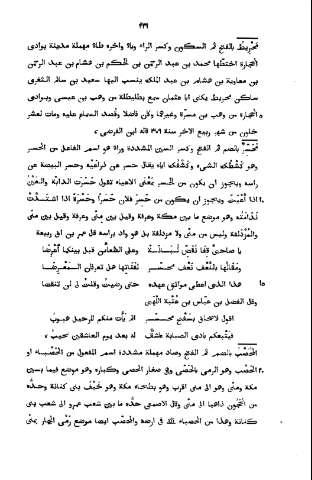 ٤٢٦
مَجْرِيطُ بالفتح ثم السكون وكسر الراء وياء واخره طاء مهملة مدينة بوادى
الحجارة اختطها محمد بن عبد الرحمن بن الحكم بن هشام بن عبد الرحمن
بن معاوية بن هشام بن عبد الملك ينسب اليها سعيد بن سالم الثغرى
ساكن مجريط يكنى ابا عثمان سمع بطليطلة من وهب بن عيسى وبوادى
الحجارة من وهب بن مسرة وغيرهما وكان فاضلا وقصد السماع عليه ومات لعشر
خلون من شهر ربيع الاخر سنة ٣٧٦ قاله ابن الفرضى ،
مُحَسِّرٌ بالضم ثم الفتح وكسر السين المشددة وراء هو اسم الفاعل من الحسر
وهو كشطك الشىء وكشفك اياه يقال حسر عن ذراعيه وحسر البيضة عن
راسه ويجوز ان يكون من الحسر بمعنى الاعياء تقول حَسَرَت الدابة والعين
اذا أَعْيَتْ ويجوز ان يكون من حَسِرَ فلان حَسَرًا وحَسْرَةً اذا اشتدّت
ندامته وهو موضع ما بين مكة وعرفة وقيل بين منى وعرفة وقيل بين منى
والمزدلفة وليس من منى ولا مزدلفة بل هو واد براسه قال عمر بن ابى ربيعة
يا صاحبىّ قفا نقض لبانة وعلى الظعاين قبل بينكما اعرضا
ومقالها بالنعف نعف محسر لفتاتها هل تعرفان المعرضا
١٥ هذا الذى اعطى مواثق عهده حتى رضيت وقلت لى لن ينقضا
وقال الفضل بن عباس بن عتبة اللهبى
اقول لاصحابى بسفح محسر الم يأن منكم للرحيل هبوب
فيتبعكم بادى الصبابة عاشق له بعد نوم العاشقين نحيب ،
المُحَصَّبُ بالضم ثم الفتح وصاد مهملة مشددة اسم المفعول من الحصباء او
الحصب وهو الرمى بالحصى وهى صغار الحصى وكباره وهو موضع فيما بين
مكة ومنى وهو الى منى اقرب وهو بطحاء مكة وهو خيف بنى كنانة وحده
من الحجون ذاهبا الى منى وقال الاصمعى حده ما بين شعب عمرو الى شعب بنى
كنانة وهذا من الحصباء فى ارضه والمحصب ايضا موضع رمى الجمار بمنى